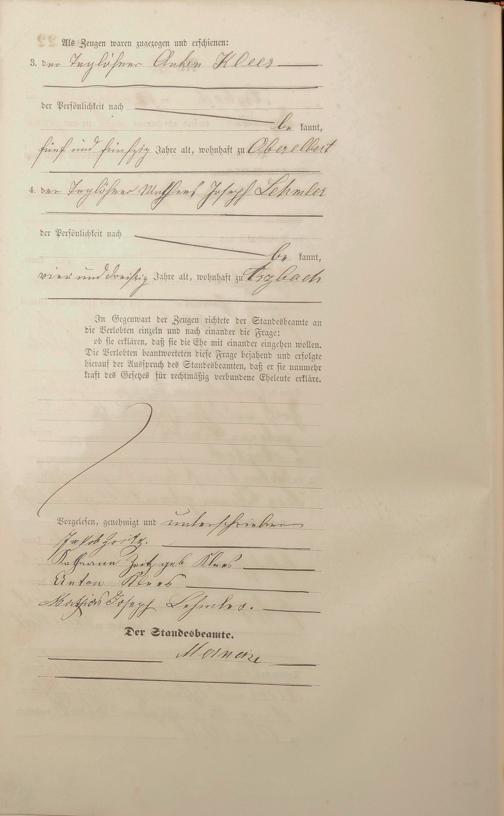 Als Zeugen waren zugezogen und erschienen:
3. der Taglöhner Anton Klees
der Persönlichkeit nach
be kannt,
fünf und fünfzig Jahre alt, wohnhaft zu Oberelbert
4. der Taglöhner Mathias Joseph Lehmler
der Persönlichkeit nach
be kannt,
vier und dreißig Jahre alt, wohnhaft zu Arzbach
In Gegenwart der Zeugen richtete der Standesbeamte an
die Verlobten einzeln und nach einander die Frage:
ob sie erklären, daß sie die Ehe mit einander eingehen wollen.
Die Verlobten beantworteten diese Frage bejahend und erfolgte
hierauf der Ausspruch des Standesbeamten, daß er sie nunmehr
kraft des Gesetzes für rechtmäßig verbundene Eheleute erkläre.
Vorgelesen, genehmigt und unterschrieben
geb Klees
Anton Klees
Mathias Joseph Lehmler.
Der Standesbeamte.